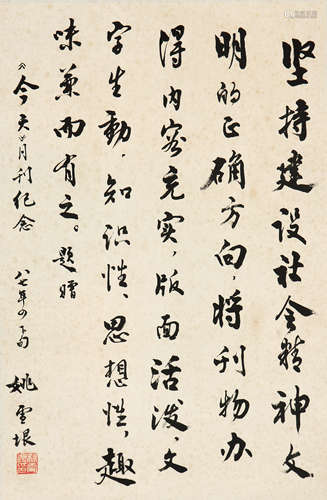 坚持建设社会精神文
明的正确方向，将刊物办
得内容充实，版面活泼，文
字生动，知识性、思想性，趣
味兼而有之。题赠
《今天》月刊纪念
八七年四月下旬
姚雪垠